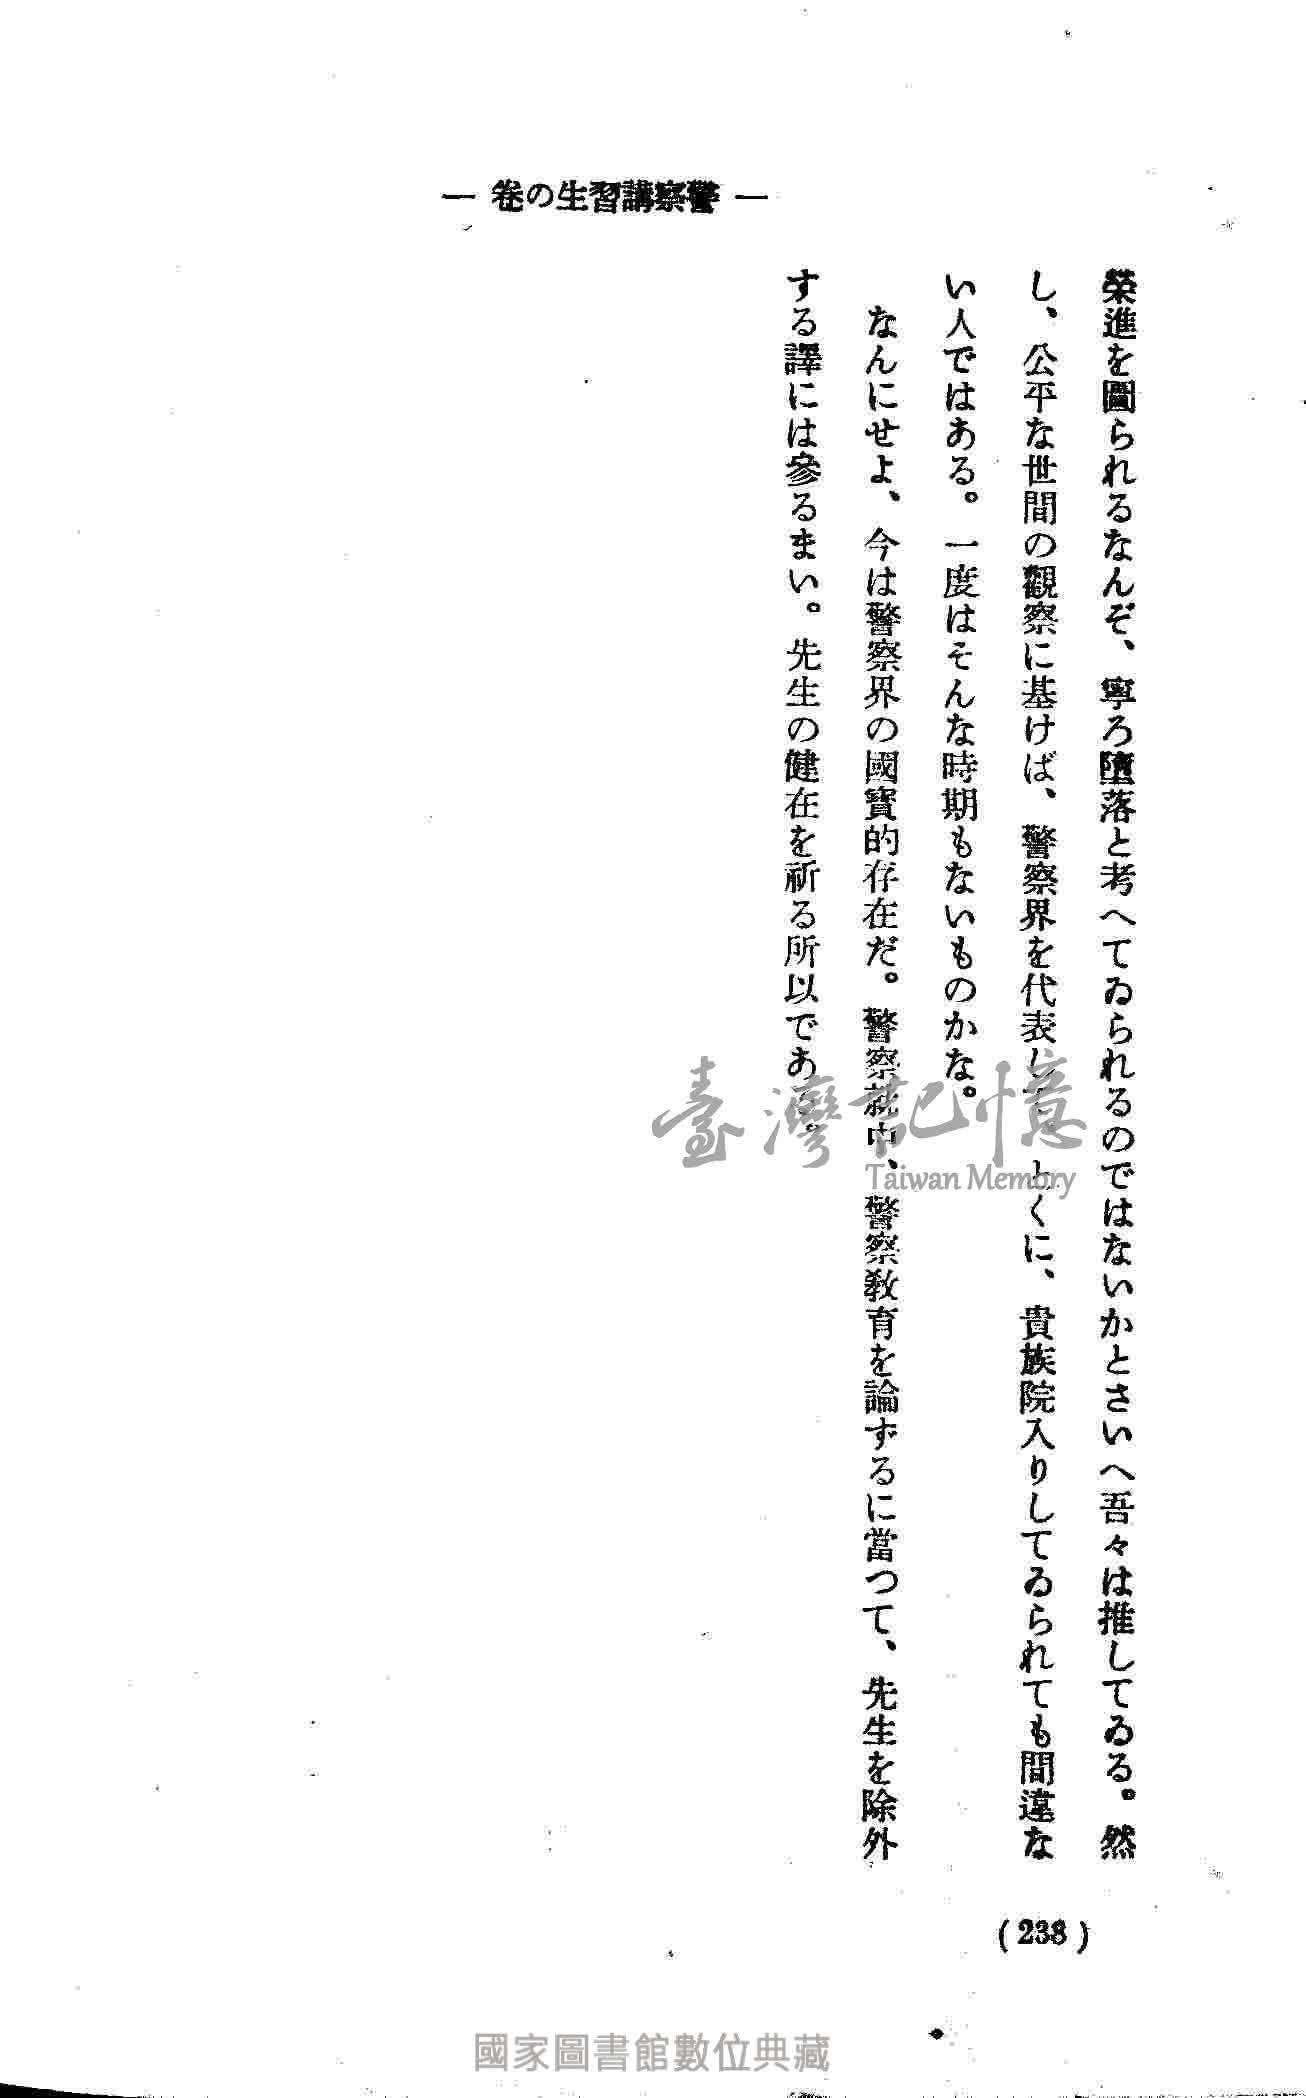 ― 警察講習生の卷 ―
榮進を圖られるなんぞ、寧ろ墮落と考へてゐられるのではないかとさいへ吾々は推してゐる。然
し、公平な世間の觀察に基けば、警察界を代表して、とくに、貴族院入りしてゐられても間違な
い人ではある。一度はそんな時期もないものかな。
なんにせよ、今は警察界の國寳的存在だ。警察就中、警察敎育を論ずるに當つて、先生を除外
する譯には參るまい。先生の健在を祈る所以である。
(238)
臺灣記憶
Taiwan Memory
國家圖書館數位典藏